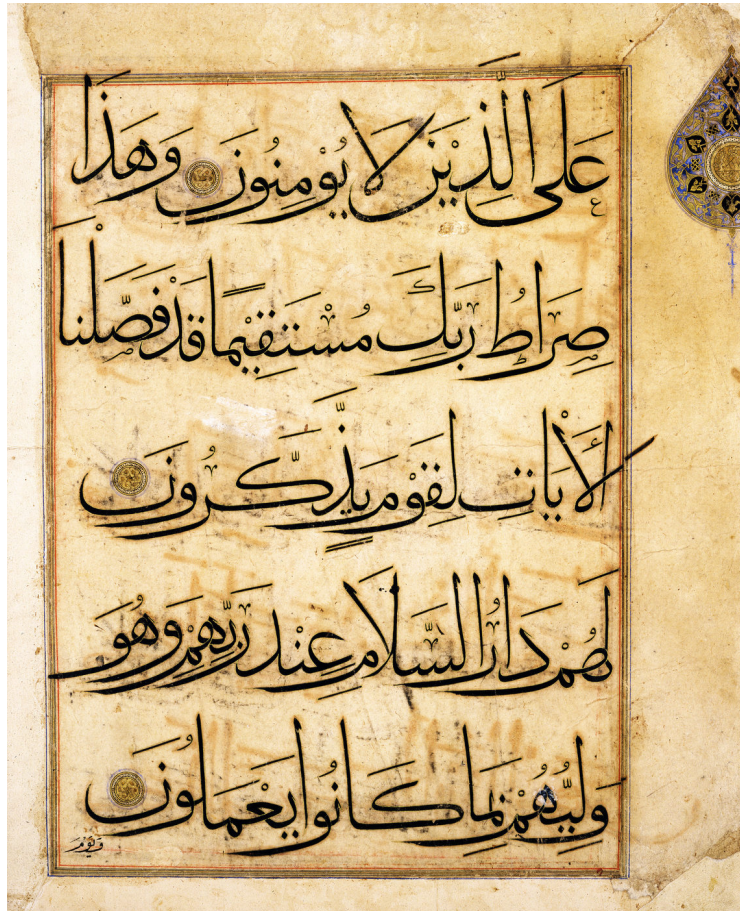 عَلَى الَّذِيْنَ لَا يُوْمِنُوْنَ وَهَذَا
صِرَاطُ رَبِّكَ مُسْتَقِيْمًا قَدْ فَصَّلْنَا
الْأَيَاتِ لِقَوْمٍ يَذَّكَّرُونَ
لَهُمْ دَارُ السَّلَامِ عِنْدَ رَبِّهِمْ وَهُوَ
وَلِيُّهُمْ بِمَا كَانُوا يَعْمَلُوْنَ
وَيَوْمَ